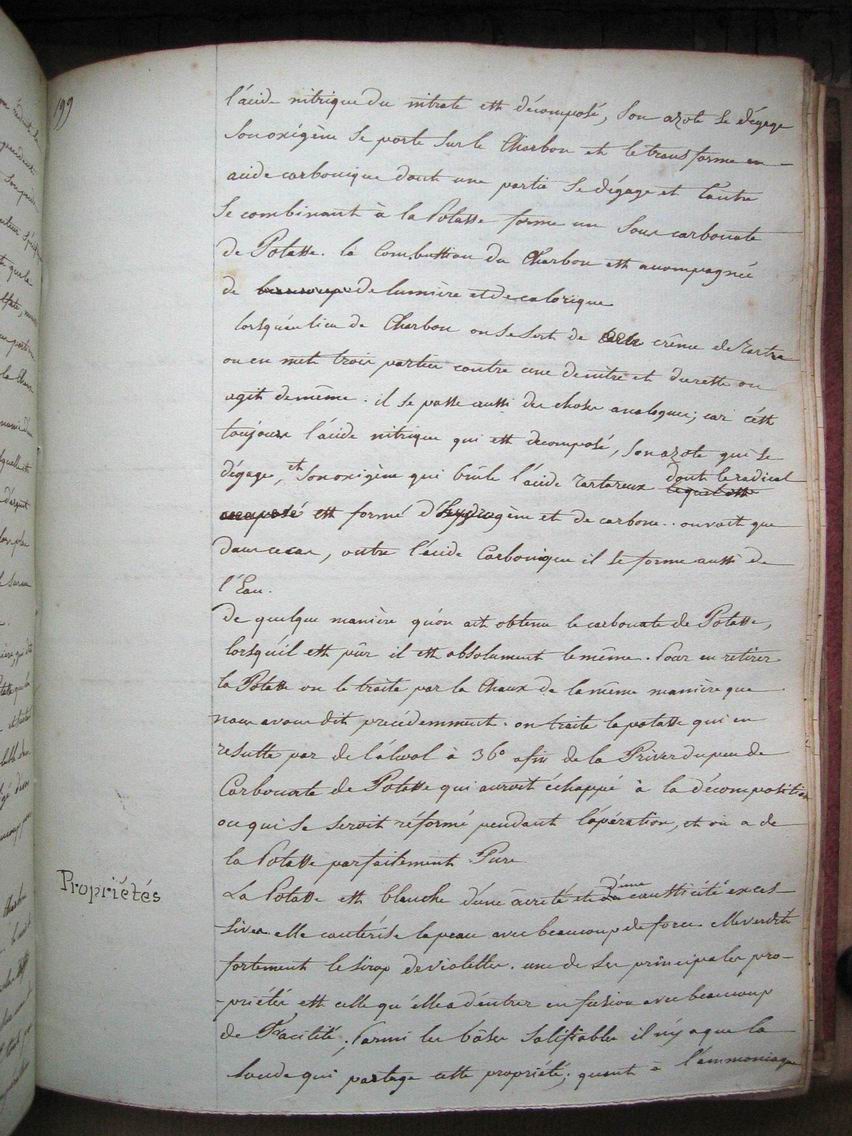 199
l'acide nitrique du nitrate est décomposé, son azote se dégage
son oxigène se porte sur le Charbon et le transforme en
acide carbonique dont une partie se dégage et l'autre
se combinant à la Potasse forme un sous carbonate
de Potasse. la Combustion du Charbon est acompagnée
de beaucoup de lumière et de calorique
lorsqu'au lieu de Charbon on se sert de crême de Tartre
on en met trois parties contre une de nitre et du reste on
agit de même. il se passe aussi des choses analogues; car c'est
toujours l'acide nitrique qui est decomposé, son azote qui se
dégage, et son oxigène qui brûle l'acide Tartareux lequel est dont le radical
composé est formé d'hydrogène et de carbone. on voit que
dans ce cas, outre l'acide Carbonique il se forme aussi de
l'Eau.
de quelque manière qu'on ait obtenu le carbonate de Potasse,
lorsqu'il est pûr il est absolument le même. Pour en retirer
la Potasse on le traite par la Chaux de la même manière que
nous avons dit précédemment. on traite la potasse qui en
resulte par de l'alcool à 36° afin de la Priver du peu de
Carbonate de Potasse qui auroit échappé à la décomposition
ou qui se seroit réformé pendant l'opération, et on a de
la Potasse parfaitement Pure
Propriétés
La Potasse est blanche d'une âcreté et d'une causticité exces-
sives elle cautérise la peau avec beaucoup de force. elle verdit
fortement le sirop de violettes. une de ses principales pro-
-priétés est celle qu'elle a d'entrer en fusion avec beaucoup
de Facilité; Parmi les bâses salifiables il n'y a que la
soude qui partage cette propriété; quant à l'ammoniaque